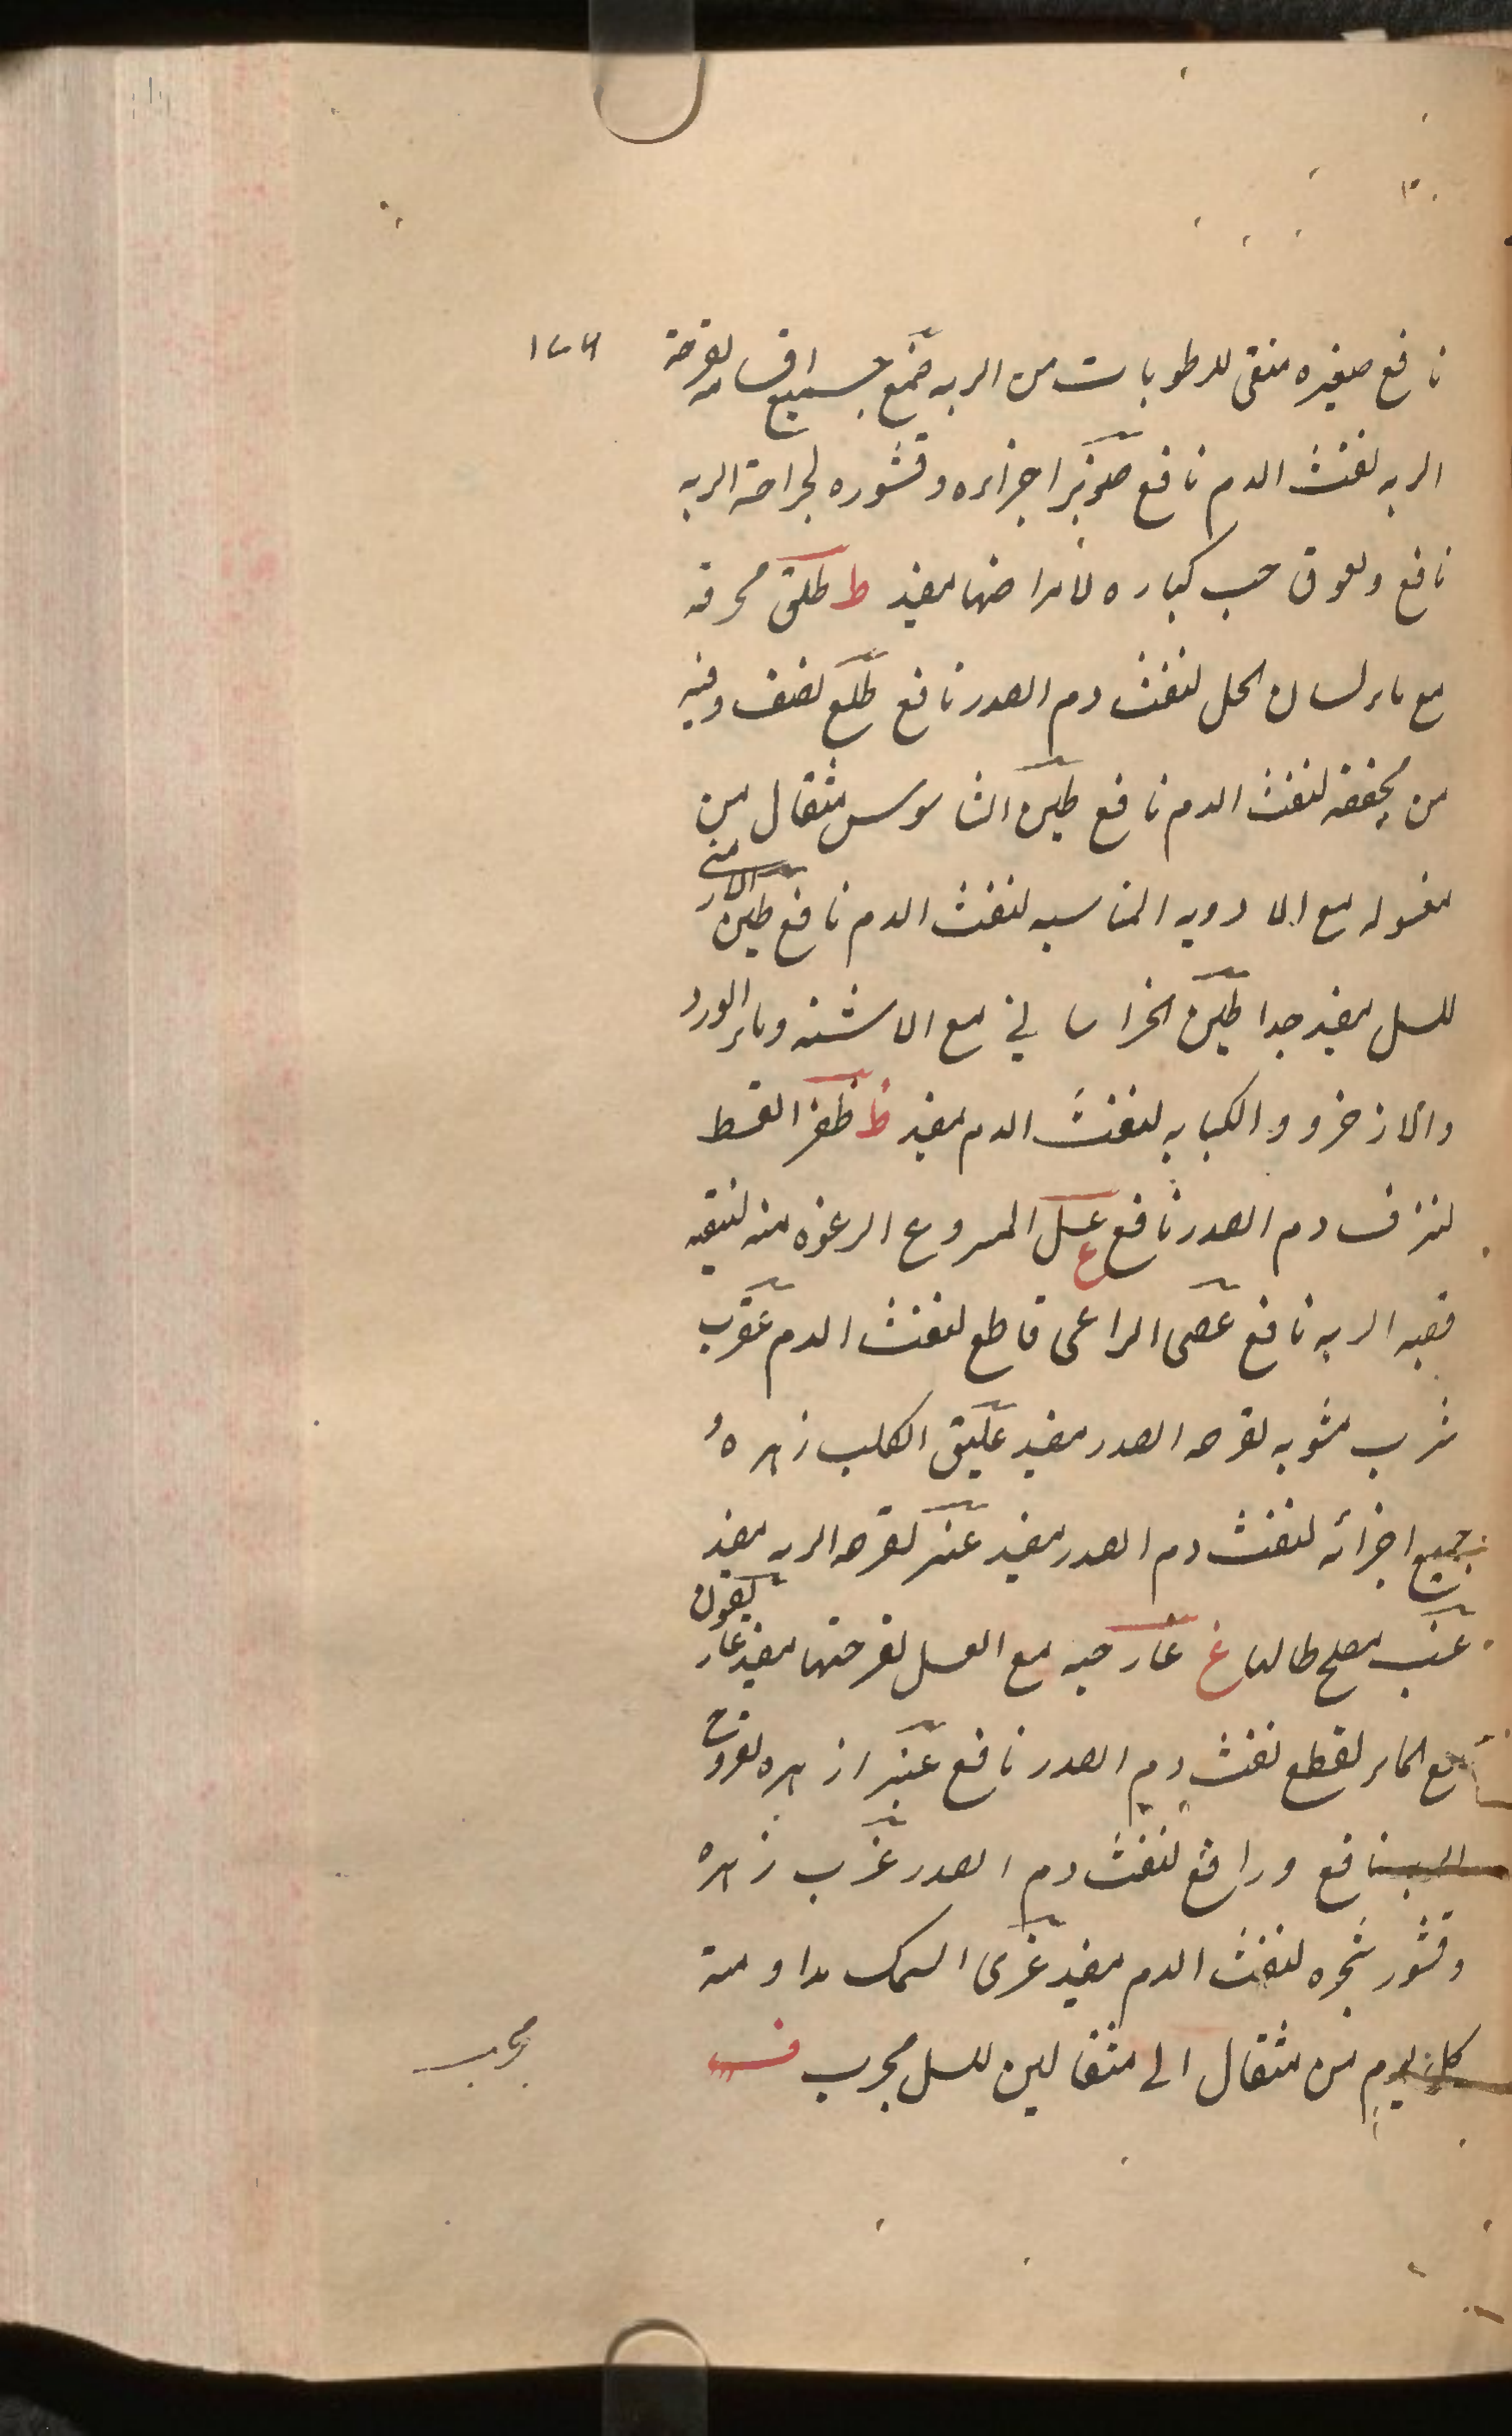 نافع صغيره منقى للرطوبات من الريه صمغ جميع اقسامه لقرحة
الريه لنفث الدم نافع صنوبر اجزاءه وقشوره لجراحة الريه
نافع ولعوق حب كباره لامراضها مفيد ط طلق محرقه
مع ماء لسان الحمل لنفث دم الصدر نافع طلع نصف وقيه
من مجففه لنفث الدم نافع طين الشاموس مثقال من
مغسوله مع الادويه المناسبه لنفث الدم نافع طين الارمنى
للسل مفيد جدا طين الخراسانى مع الاشنه وماء الورد
والاذخر والكبابه لنفث الدم مفيد ظ ظفر القط
لنزف دم الصدر نافع ع عسل المنزوع الرغوه منه لتنقيه
قصبه الريه نافع عصى الراعى قاطع لنفث الدم عقرب
شرب مشويه لقرحه الصدر مفيد عليق الكلب زهره
جميع اجزائه لنفث دم الصدر مفيد عنبر لقرحه الريه مفيد
عنب مصلح حالها غ غار حبه مع العسل لقرحتها مفيد غاريقون
مع الماء لقطع نفث دم الصدر نافع غبيرا زهره لقروح
الريه نافع ورافع لنفث دم الصدر غرب زهره
وقشور شجره لنفث الدم مفيد غرى السمك مداومة
كل يوم من مثقال الى مثقالين للسل مجرب ف
مجرب